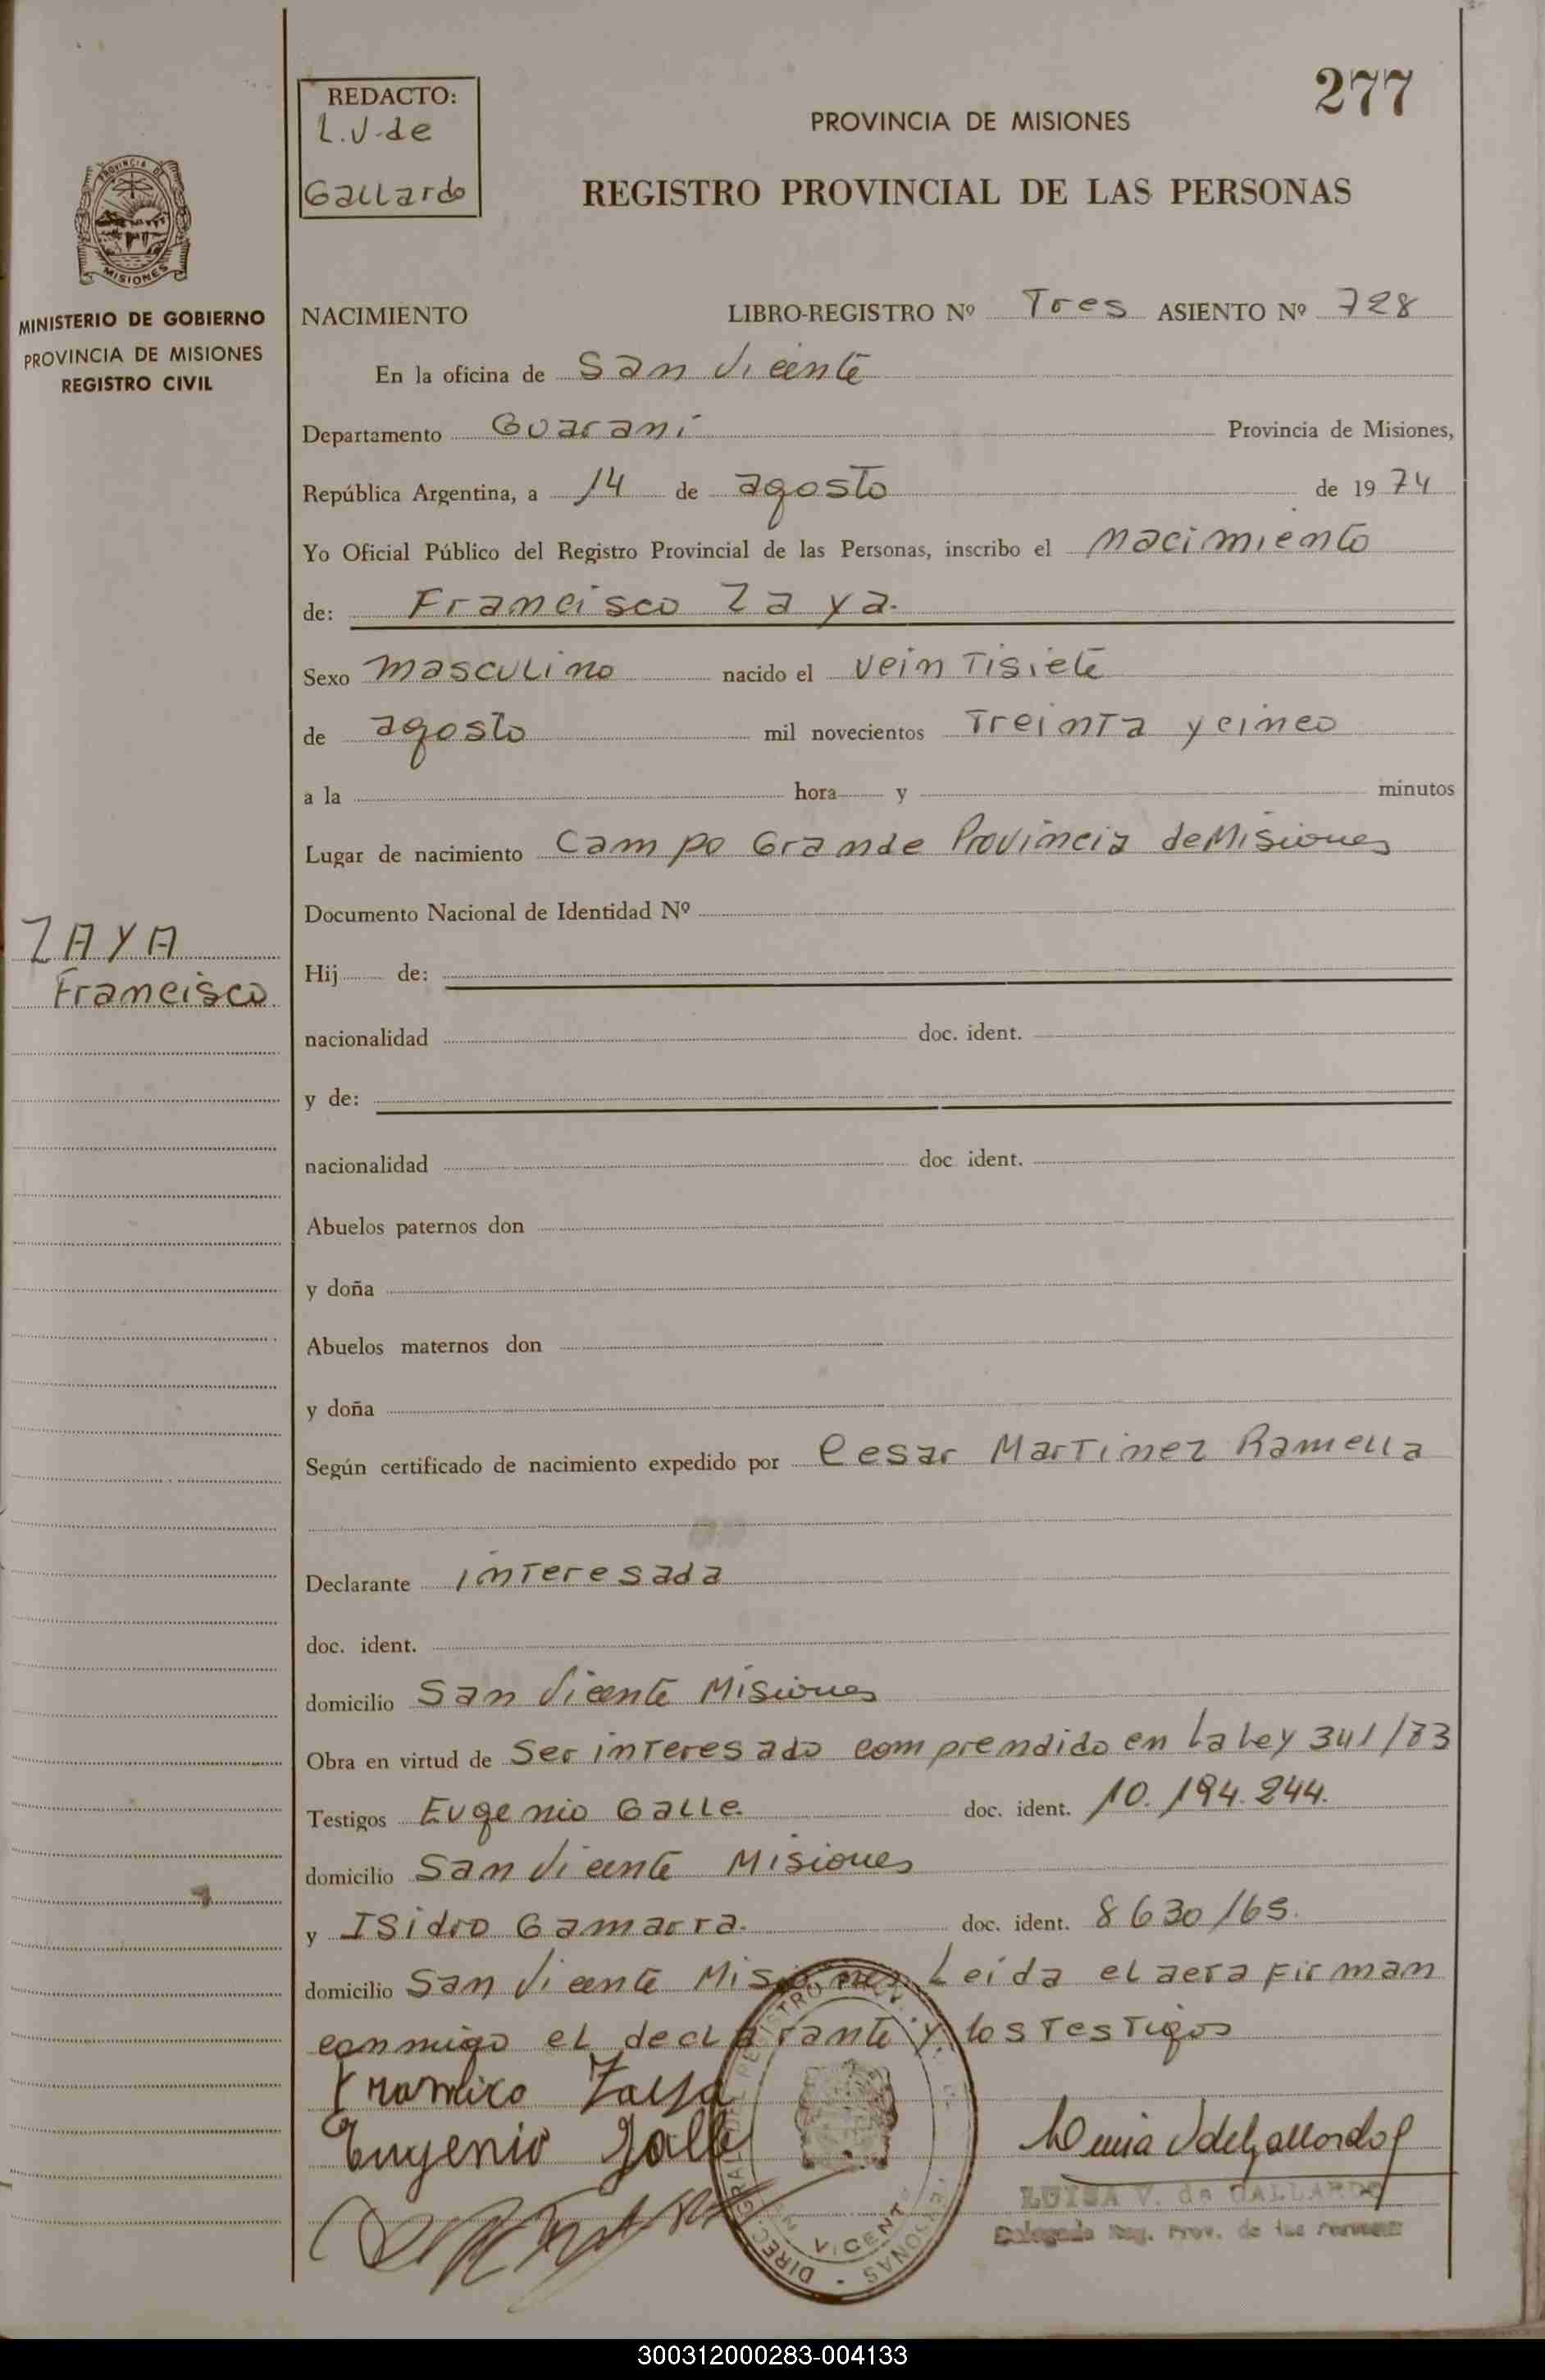 277
REDACTO:
L.V. de
Gallardo
PROVINCIA DE MISIONES
REGISTRO PROVINCIAL DE LAS PERSONAS
PROVINCIA DE
MISIONES
MINISTERIO DE GOBIERNO
PROVINCIA DE MISIONES
REGISTRO CIVIL
NACIMIENTO LIBRO-REGISTRO Nº Tres ASIENTO Nº 728
En la oficina de San Vicente
Departamento Guaraní Provincia de Misiones,
República Argentina, a 14 de agosto de 1974
Yo Oficial Público del Registro Provincial de las Personas, inscribo el nacimiento
de: Francisco Zaya.
Sexo masculino nacido el veintisiete
de agosto mil novecientos treinta y cinco
a la hora y minutos
Lugar de nacimiento Campo Grande Provincia de Misiones
Documento Nacional de Identidad Nº
ZAYA
Francisco
Hij de:
nacionalidad doc. ident.
y de:
nacionalidad doc. ident.
Abuelos paternos don
y doña
Abuelos maternos don
y doña
Según certificado de nacimiento expedido por Cesar Martinez Ramella
Declarante interesada
doc. ident.
domicilio San Vicente Misiones
Obra en virtud de Ser interesado comprendido en la Ley 341/73
Testigos Eugenio Galle. doc. ident. 10.194.244.
domicilio San Vicente Misiones
y Isidro Gamarra. doc. ident. 8630/65.
domicilio San Vicente Misiones Leída el acta firman
conmigo el declarante y los testigos
Francisco Zaya
Eugenio Galle
Luisa V de Gallardo
LUISA V. de GALLARDO
Delegada Reg. Prov. de las Personas
VICENT
DIREC. GRAL.
300312000283-004133